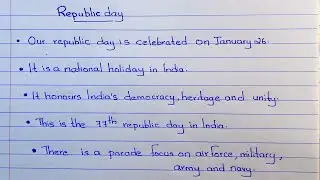 Republic day
• Our republic day is celebrated on January 26.
• It is a national holiday in India.
• It honours India's democracy, heritage and unity.
• This is the 77th republic day in India.
• There is a parade focus on airforce, military,
army and navy.